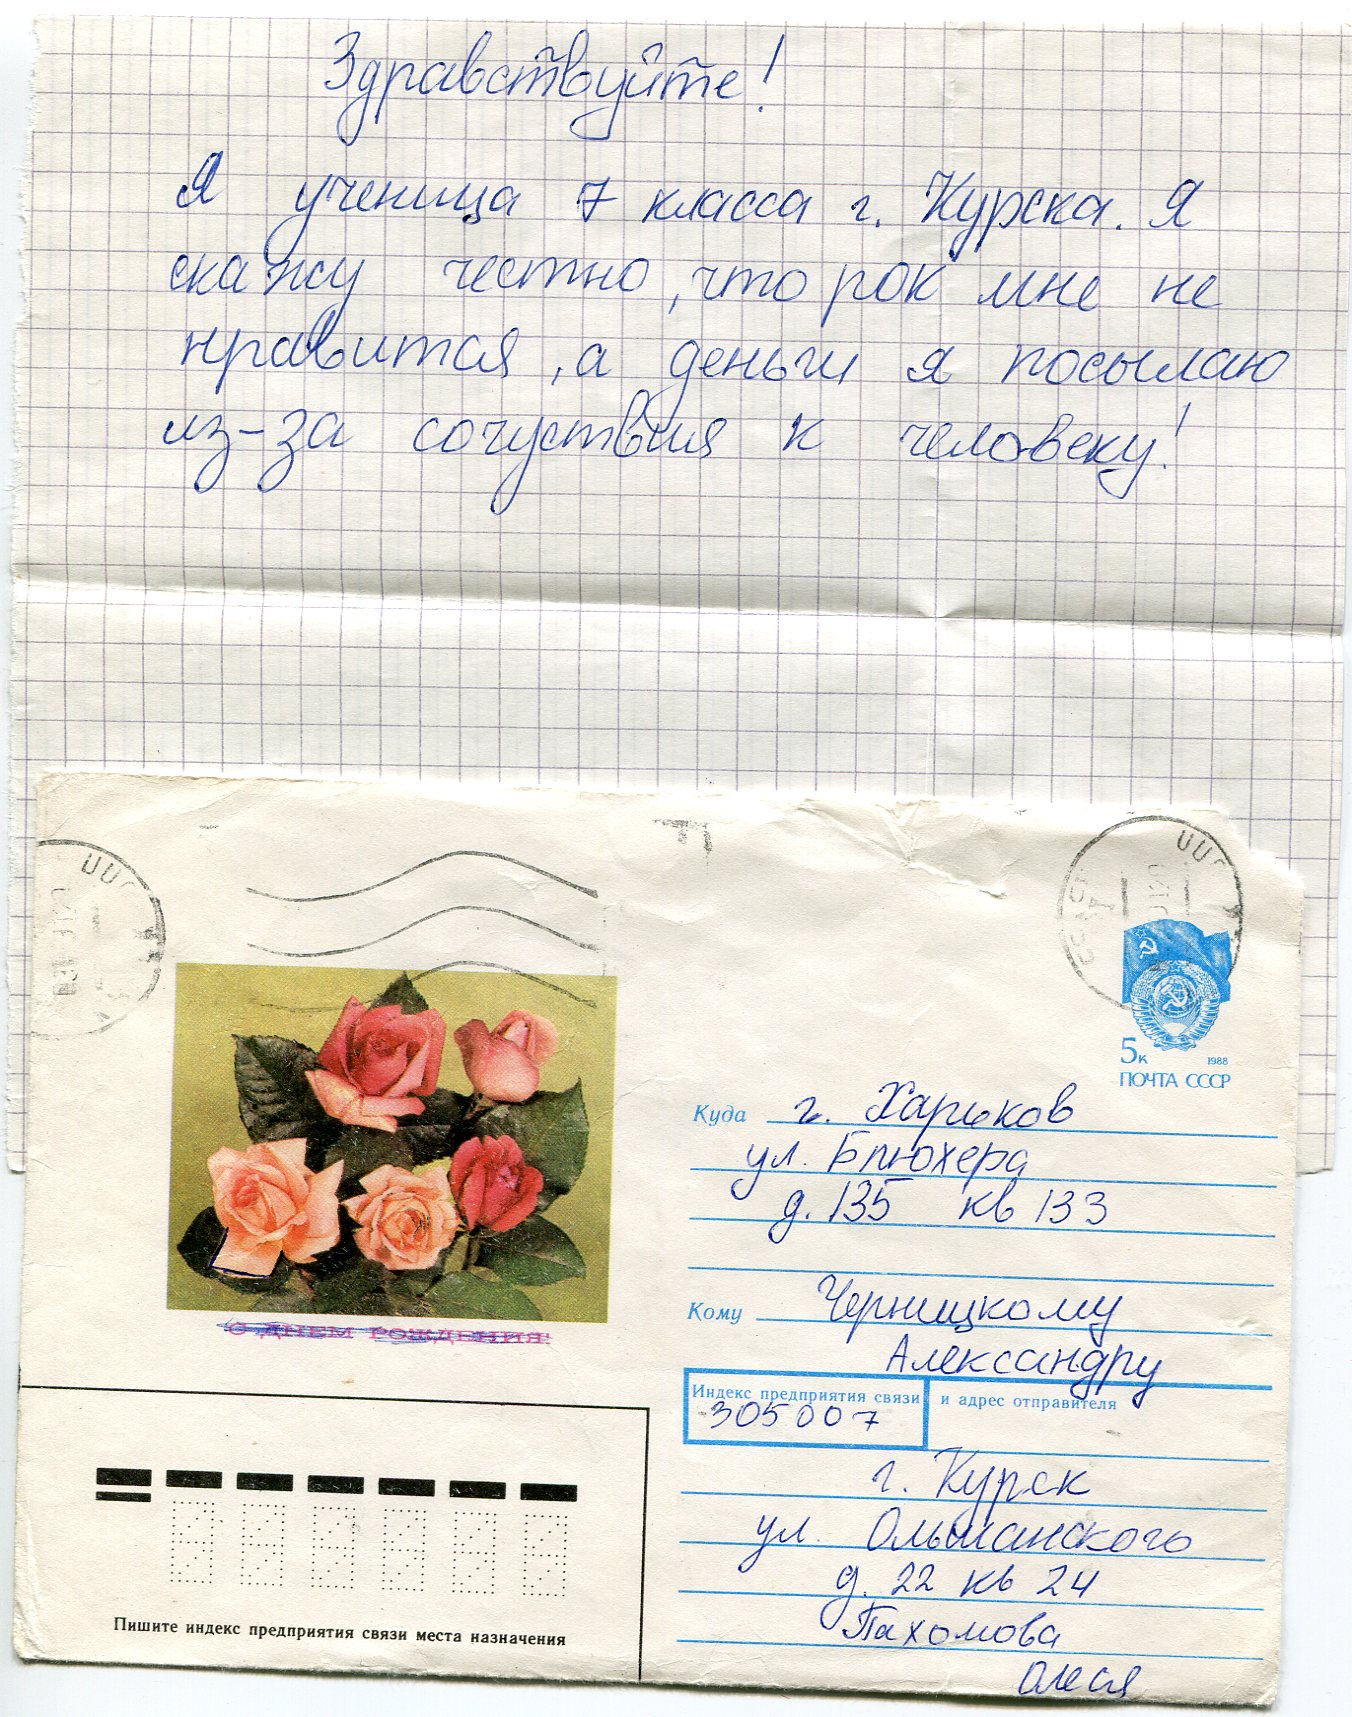 Здравствуйте!
Я ученица 7 класса г. Курска. Я
скажу честно, что рок мне не
нравится, а деньги я посылаю
из-за сочуствия к человеку!
5к
1988
ПОЧТА СССР
Куда г. Харьков
ул. Блюхера
д. 135 кв 133
Кому Черницкому
Александру
С ДНЕМ РОЖДЕНИЯ!
Индекс предприятия связи и адрес отправителя
305007
г. Курск
ул. Ольшанского
д. 22 кв 24
Пахомова
Олеся
Пишите индекс предприятия связи места назначения